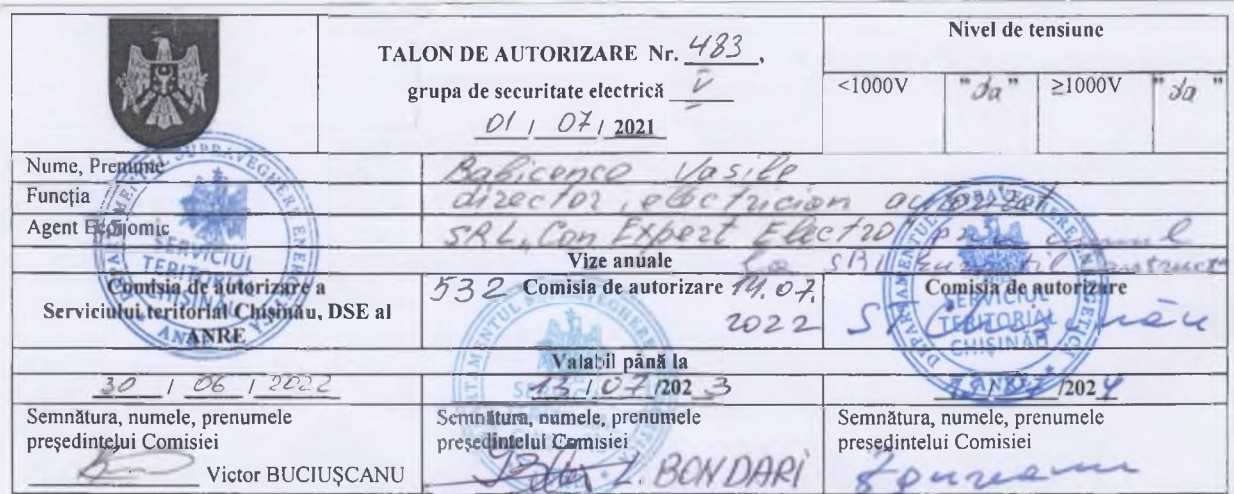 TALON DE AUTORIZARE Nr. 483,
grupa de securitate electrică V
01 / 07 / 2021
Nivel de tensiune
<1000V "da" ≥1000V "da"
Nume, Prenume Babicenco Vasile
Funcția director, electrician autorizat
Agent Economic SRL, Con Expert Electro prin cumul
la SRL
Vize anuale
Comisia de autorizare a
Serviciului teritorial Chișinău, DSE al
ANRE
532 Comisia de autorizare 14.07.
2022
Comisia de autorizare
ST Chișinău
Valabil până la
30 / 06 / 2022
13 / 07 /2023
/2024
Semnătura, numele, prenumele
președintelui Comisiei
Victor BUCIUȘCANU
Semnătura, numele, prenumele
președintelui Comisiei
L. BONDARI
Semnătura, numele, prenumele
președintelui Comisiei
SERVICIUL
TERITORIAL
CHIȘINĂU
ANRE
SERVICIUL
TERITORIAL
CHIȘINĂU
ANRE